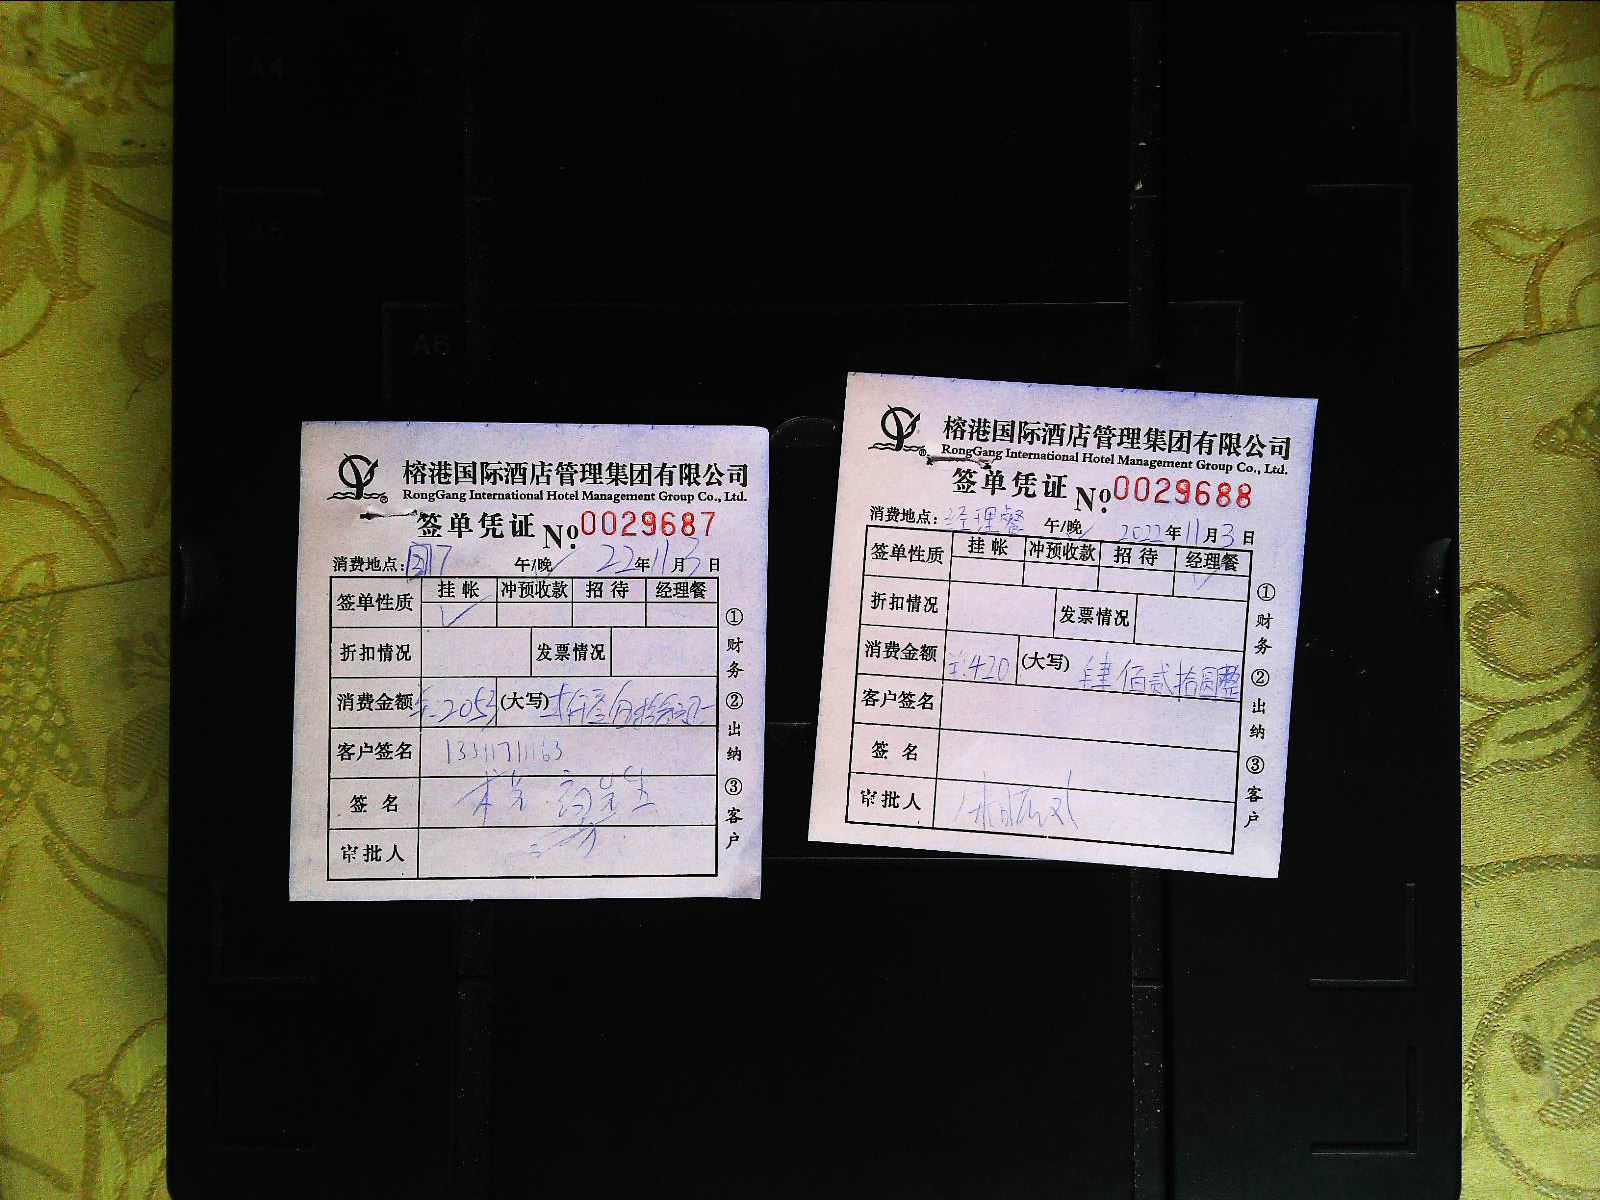 A4
A5
A6
榕港国际酒店管理集团有限公司
RongGang International Hotel Management Group Co., Ltd.
签单凭证 №.0029687
消费地点: 午/晚 22年11月3日
签单性质 挂帐 冲预收款 招待 经理餐
折扣情况 发票情况
消费金额 ¥:2053 (大写)
客户签名 13311711163
签名
审批人
①财务 ②出纳 ③客户
榕港国际酒店管理集团有限公司
RongGang International Hotel Management Group Co., Ltd.
签单凭证 №.0029688
消费地点: 经理餐 午/晚 2022年11月3日
签单性质 挂帐 冲预收款 招待 经理餐
折扣情况 发票情况
消费金额 ¥:420 (大写) 肆佰贰拾圆整
客户签名
签名
审批人
①财务 ②出纳 ③客户